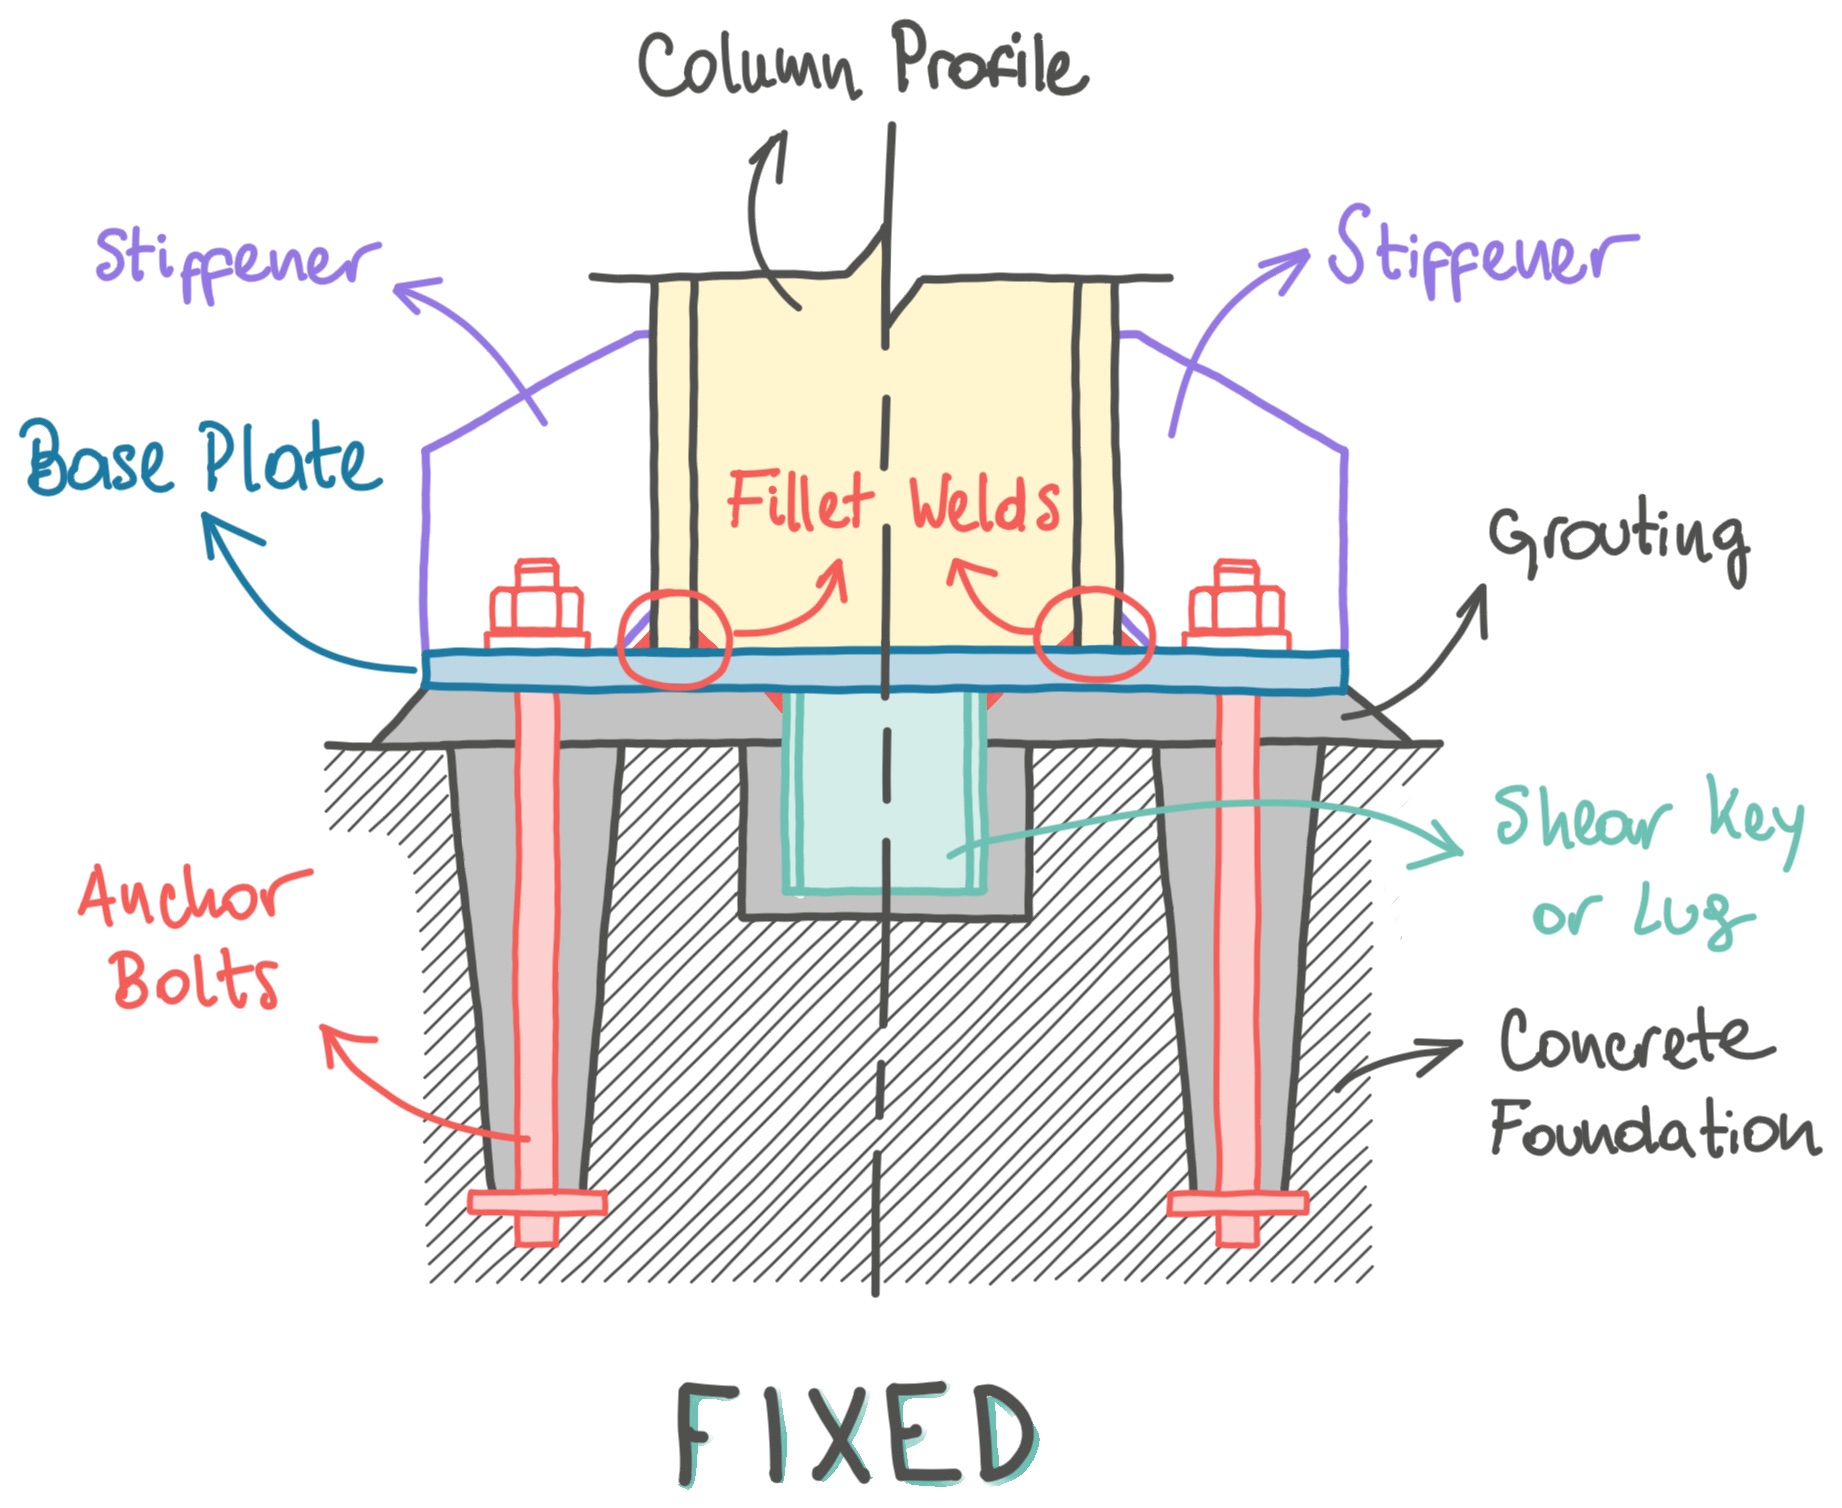 Column Profile
Stiffener
Stiffener
Base Plate
Fillet Welds
Grouting
Shear Key
or Lug
Anchor
Bolts
Concrete
Foundation
FIXED